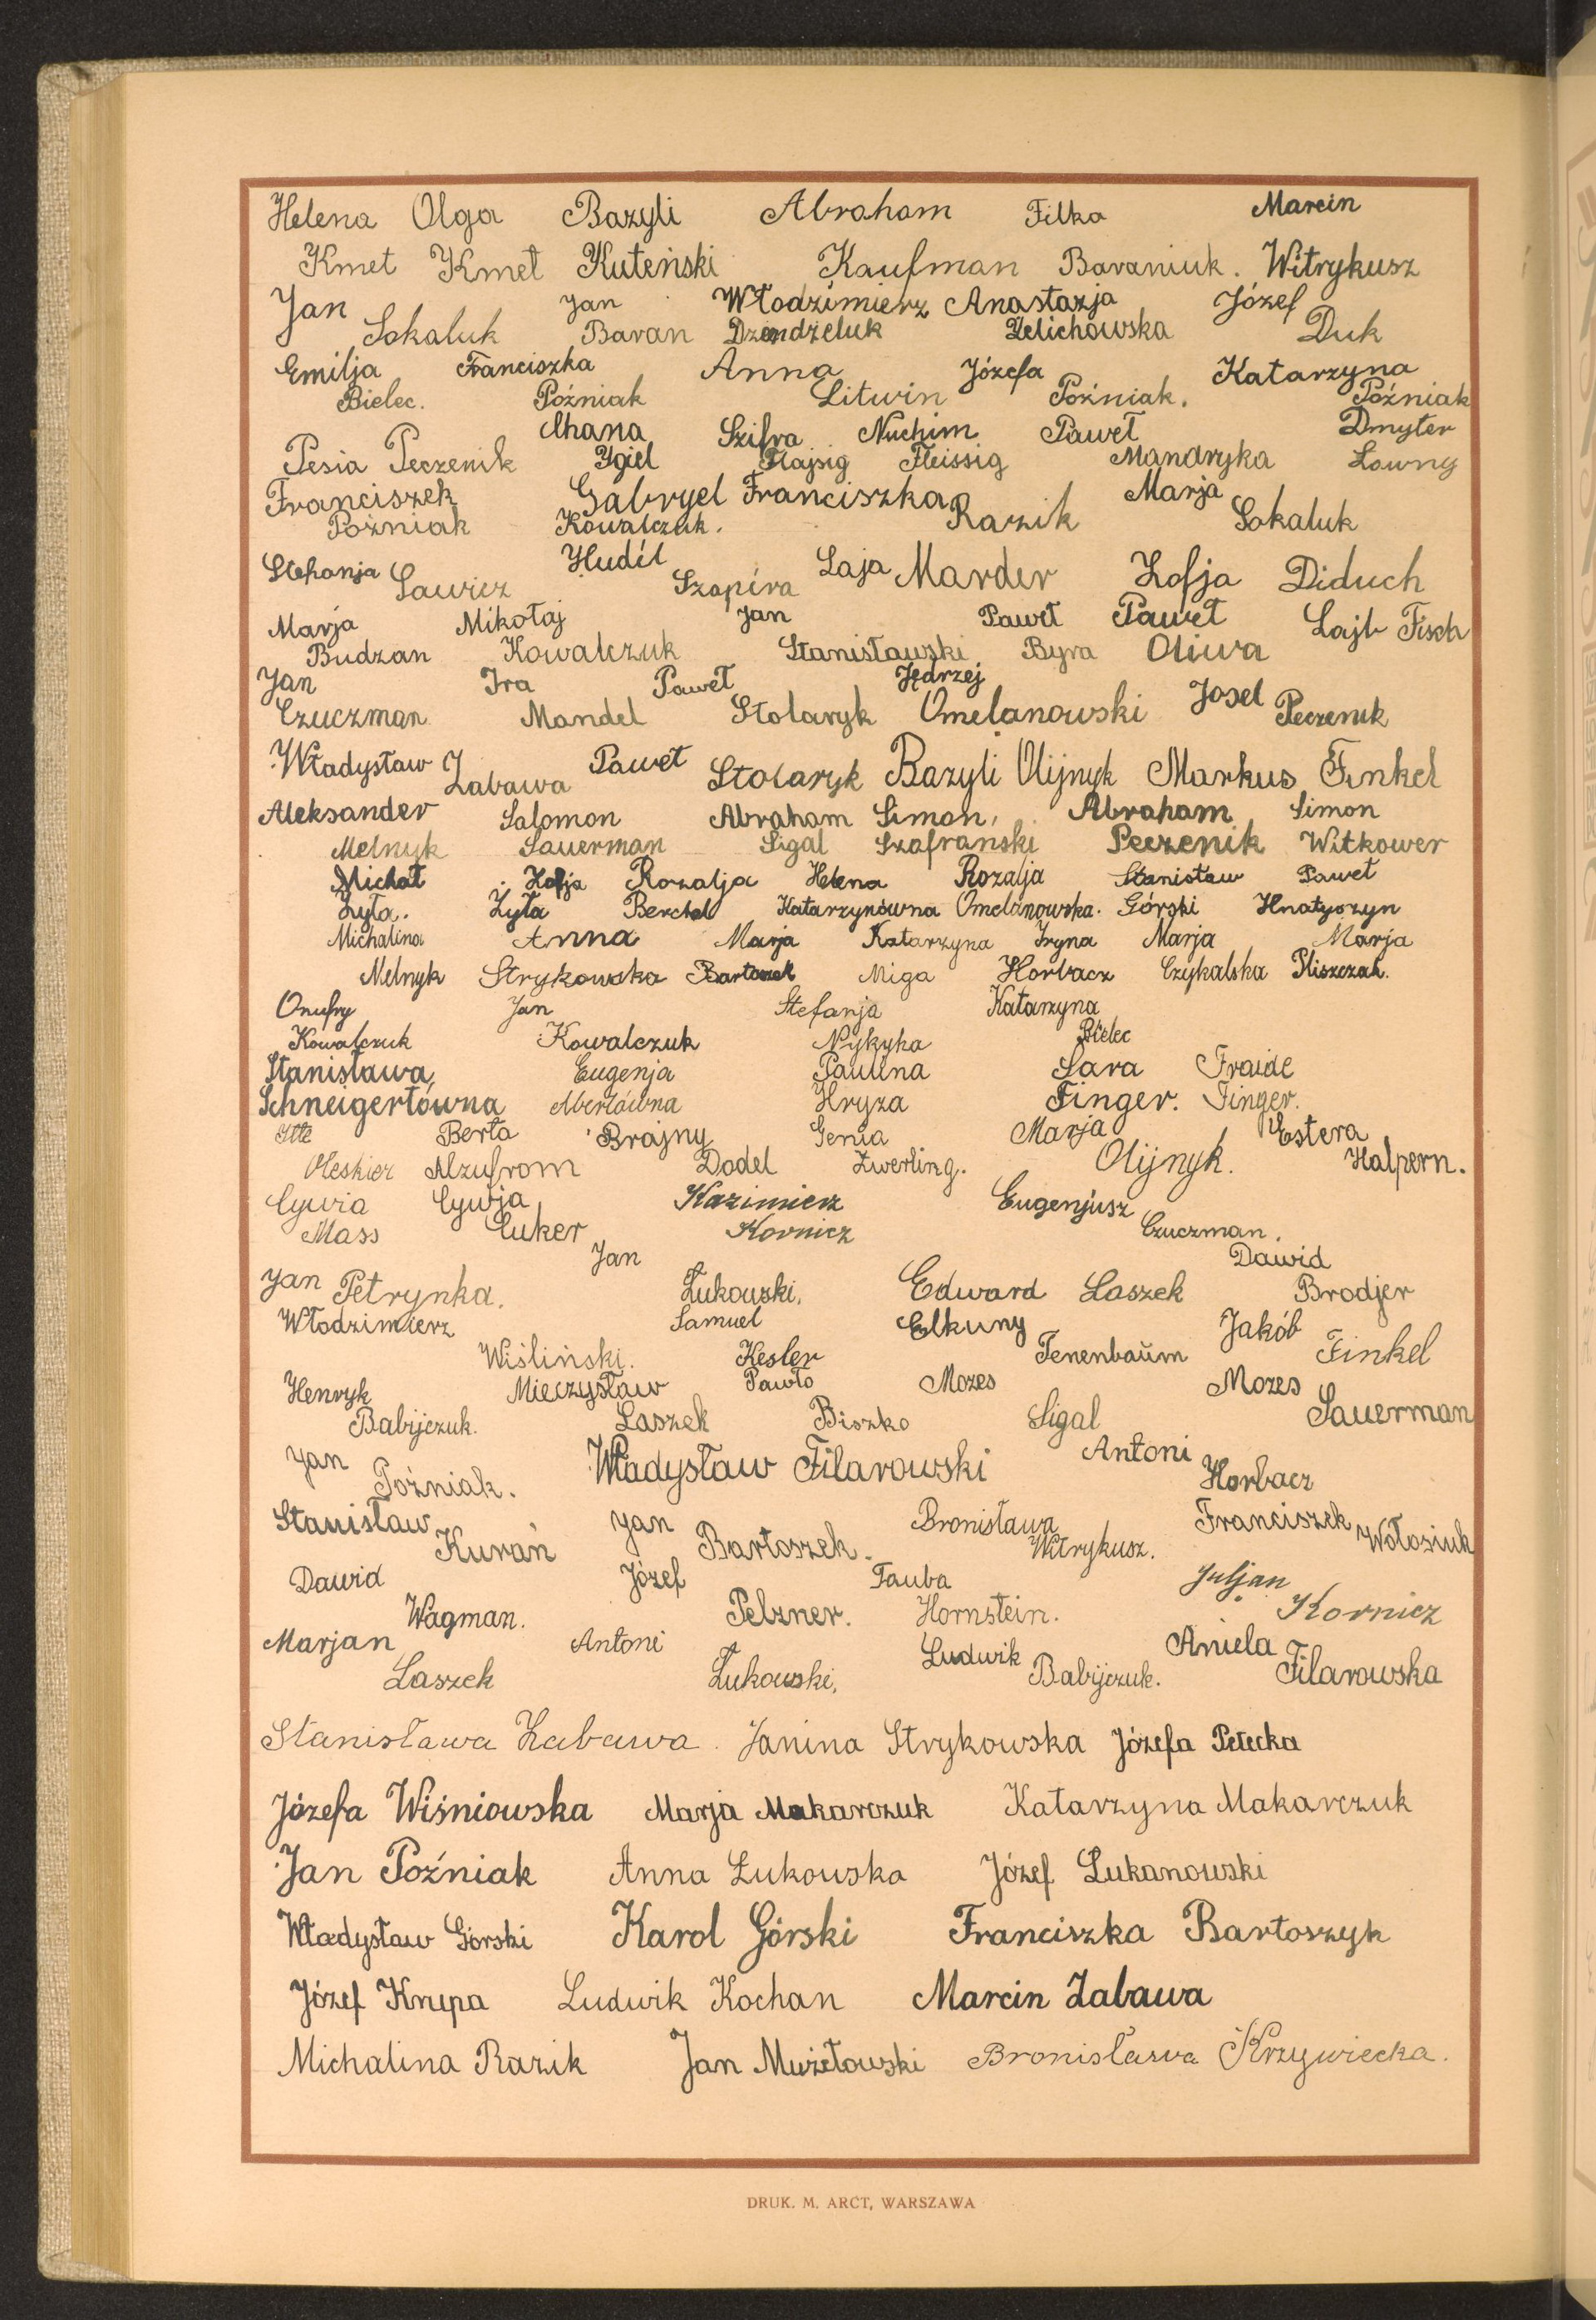 Helena Olga Bazyli Abraham Filka Marcin
Kmet Kmet Kuteński Kaufman Baraniuk. Witrykusz
Jan Jan Włodzimierz Anastazja Józef
Sokaluk Baran Dzendzeluk Zelichowska Duk
Emilja Franciszka Anna Józefa Katarzyna
Bielec. Poźniak Litwin Poźniak. Poźniak
Chana Szifra Nuchim Paweł Dmyter
Pesia Peczenik Ygiel Flajsig Fleissig Mandryka Łowny
Franciszek Gabryel Franciszka Marja
Poźniak Kowalczuk. Razik Sokaluk
Stefanja Hudil Laja Marder Zofja Diduch
Sawicz Szapira
Marja Mikołaj Jan Paweł Paweł Lajb Fisch
Budzan Kowalczuk Stanisławski Byra Oliwa
Jan Ira Paweł Jędrzej Josel
Czuczman Mandel Stolaryk Omelanowski Peczenik
Władysław Paweł Stolaryk Bazyli Olijnyk Markus Finkel
Zabawa
Aleksander Salomon Abraham Simon. Abraham Simon
Melnyk Sauerman Sigal Szafranski Peczenik Witkower
Michał Zofja Rozalja Helena Rozalja Stanisław Paweł
Zyła. Zyła Berchel Katarzynówna Omelanowska. Górski Hnatyszyn
Michalina Anna Marja Katarzyna Iryna Marja Marja
Melnyk Strykowska Bartoszek Miga Horbacz Czykalska Pliszczak.
Onufry Jan Stefanja Katarzyna
Kowalczuk Kowalczuk Nykyka Bielec
Stanisława Eugenja Paulina Sara Fraide
Schneigertówna Abertówna Hryza Finger. Finger.
Itte Berta Brajny Genia Marja Estera
Oleskier Alzufrom Dodel Zwerling. Olijnyk. Halpern.
Cywia Cywja Kazimierz Eugenjusz
Mass Cuker Kornicz Czuczman.
Jan Dawid
Jan Petrynka. Łukowski. Edward Laszek Brodjer
Włodzimierz Samuel Elkuny Jakób
Wiśliński. Kesler Tenenbaum Finkel
Henryk Mieczysław Pawło Mozes Mozes
Babijczuk. Laszek Biszko Sigal Sauerman
Jan Władysław Filarowski Antoni
Poźniak. Horbacz
Stanisław Jan Bronisława Franciszek
Kurań Bartoszek. Witrykusz. Wołosiuk
Dawid Józef Tauba Juljan
Wagman. Pelzner. Hornstein. Kornicz
Marjan Antoni Ludwik Aniela
Laszek Łukowski. Babijczuk. Filarowska
Stanisława Zabawa. Janina Strykowska Józefa Petecka
Józefa Wiśniowska Marja Makarczuk Katarzyna Makarczuk
Jan Poźniak Anna Łukowska Józef Lukanowski
Władysław Górski Karol Górski Franciszka Bartoszyk
Józef Knepa Ludwik Kochan Marcin Zabawa
Michalina Razik Jan Muzełowski Bronisława Krzywiecka.
DRUK. M. ARCT, WARSZAWA